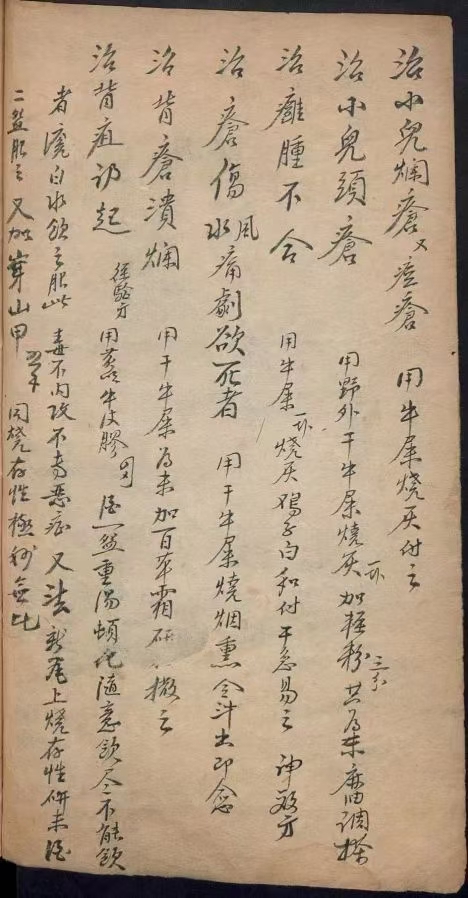 治小兒爛瘡又痘瘡 用牛屎燒灰付之
治小兒頭瘡 用野外干牛屎燒灰一不加輕粉三分共為末麻油調搽
治癰腫不合 用牛屎一不燒灰鳮子白和付干急易之神效方
治瘡傷風水痛劇欲死者 用干牛屎燒烟熏令汁出即愈
治背瘡潰爛 用干牛屎為末加百草霜研 撒之
治背疽初起 經驗方 用黃牛皮膠四兩酒一盆重湯頓化隨意飲尽不能飲
者滾白水飲之服此毒不內攻不傳惡症又法新瓦上燒存性研末酒
二盆服之又加穿山甲 同燒存性極妙無比